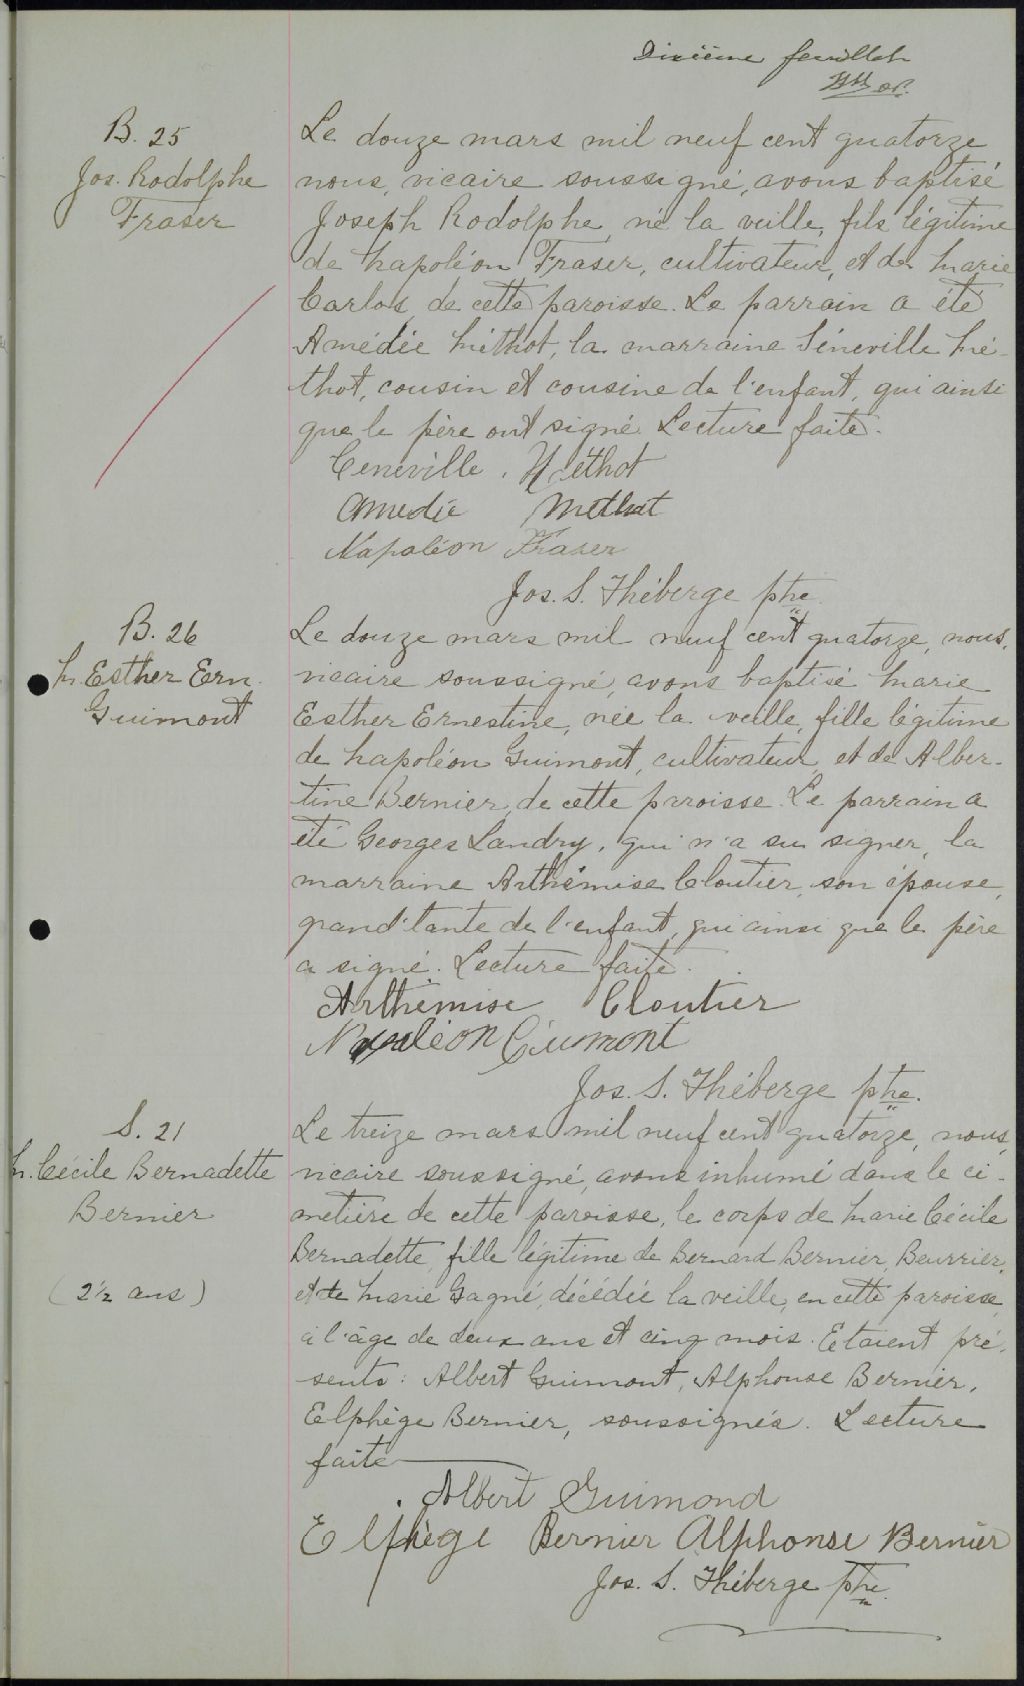 Dixième feuillet
B. 25
Jos. Rodolphe
Fraser
Le douze mars mil neuf cent quatorze
nous, vicaire soussigné, avons baptisé
Joseph Rodolphe, né la veille, fils légitime
de Napoléon Fraser, cultivateur, et de Marie
Carlos, de cette paroisse. Le parrain a été
Amédée Méthot, la marraine Séneville Mé-
thot, cousin et cousine de l'enfant, qui ainsi
que le père ont signé. Lecture faite.
Ceneville Méthot
Amedie Methot
Napoléon Fraser
Jos. S. Théberge ptre
B. 26
M. Esther Ern.
Guimont
Le douze mars mil neuf cent quatorze, nous,
vicaire soussigné, avons baptisé Marie
Esther Ernestine, née la veille, fille légitime
de Napoléon Guimont, cultivateur, et de Alber-
tine Bernier, de cette paroisse. Le parrain a
été Georges Landry, qui n'a su signer, la
marraine Arthémise Cloutier, son épouse,
grand'tante de l'enfant, qui ainsi que le père
a signé. Lecture faite.
Arthémise Cloutier
Napoléon Guimont
Jos. S. Théberge ptre.
S. 21
M. Cécile Bernadette
Bernier
(2½ ans)
Le treize mars mil neuf cent quatorze, nous,
vicaire soussigné, avons inhumé dans le ci-
metière de cette paroisse, le corps de Marie Cécile
Bernadette, fille légitime de Bernard Bernier, Beurrier,
et de Marie Gagné, décédée la veille, en cette paroisse,
à l'âge de deux ans et cinq mois. Etaient pré-
sents: Albert Guimont, Alphonse Bernier,
Elphège Bernier, soussignés. Lecture
faite
Albert Guimond
Elphège Bernier Alphonse Bernier
Jos. S. Théberge ptre.